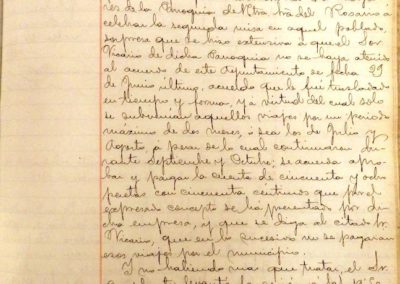 res de la Parroquia de Ntra. Sra. del Rosario a
celebrar la segunda misa en aquel poblado,
sorpresa que se hizo extensiva a que el Sor
Vicario de dicha Parroquia no se haya atenido
al acuerdo de este Ayuntamiento de fecha 29
de Junio último, acuerdo que le fue trasladado
en tiempo y forma, y a virtud del cual solo
se subvenian aquellos viajes por un periodo
máximo de dos meses, o sea los de Julio y
Agosto, a pesar de lo cual continuaron du-
rante Septiembre y Octubre; se acuerda apro-
bar y pagar la cuenta de cincuenta y ocho
pesetas con cincuenta centimos que por el
expresado concepto se ha presentado por di-
cha empresa, y que se diga al citado Sr.
Vicario, que en lo sucesivo no se pagaran
esos viajes por el municipio.
Y no habiendo mas que tratar, el Sr.